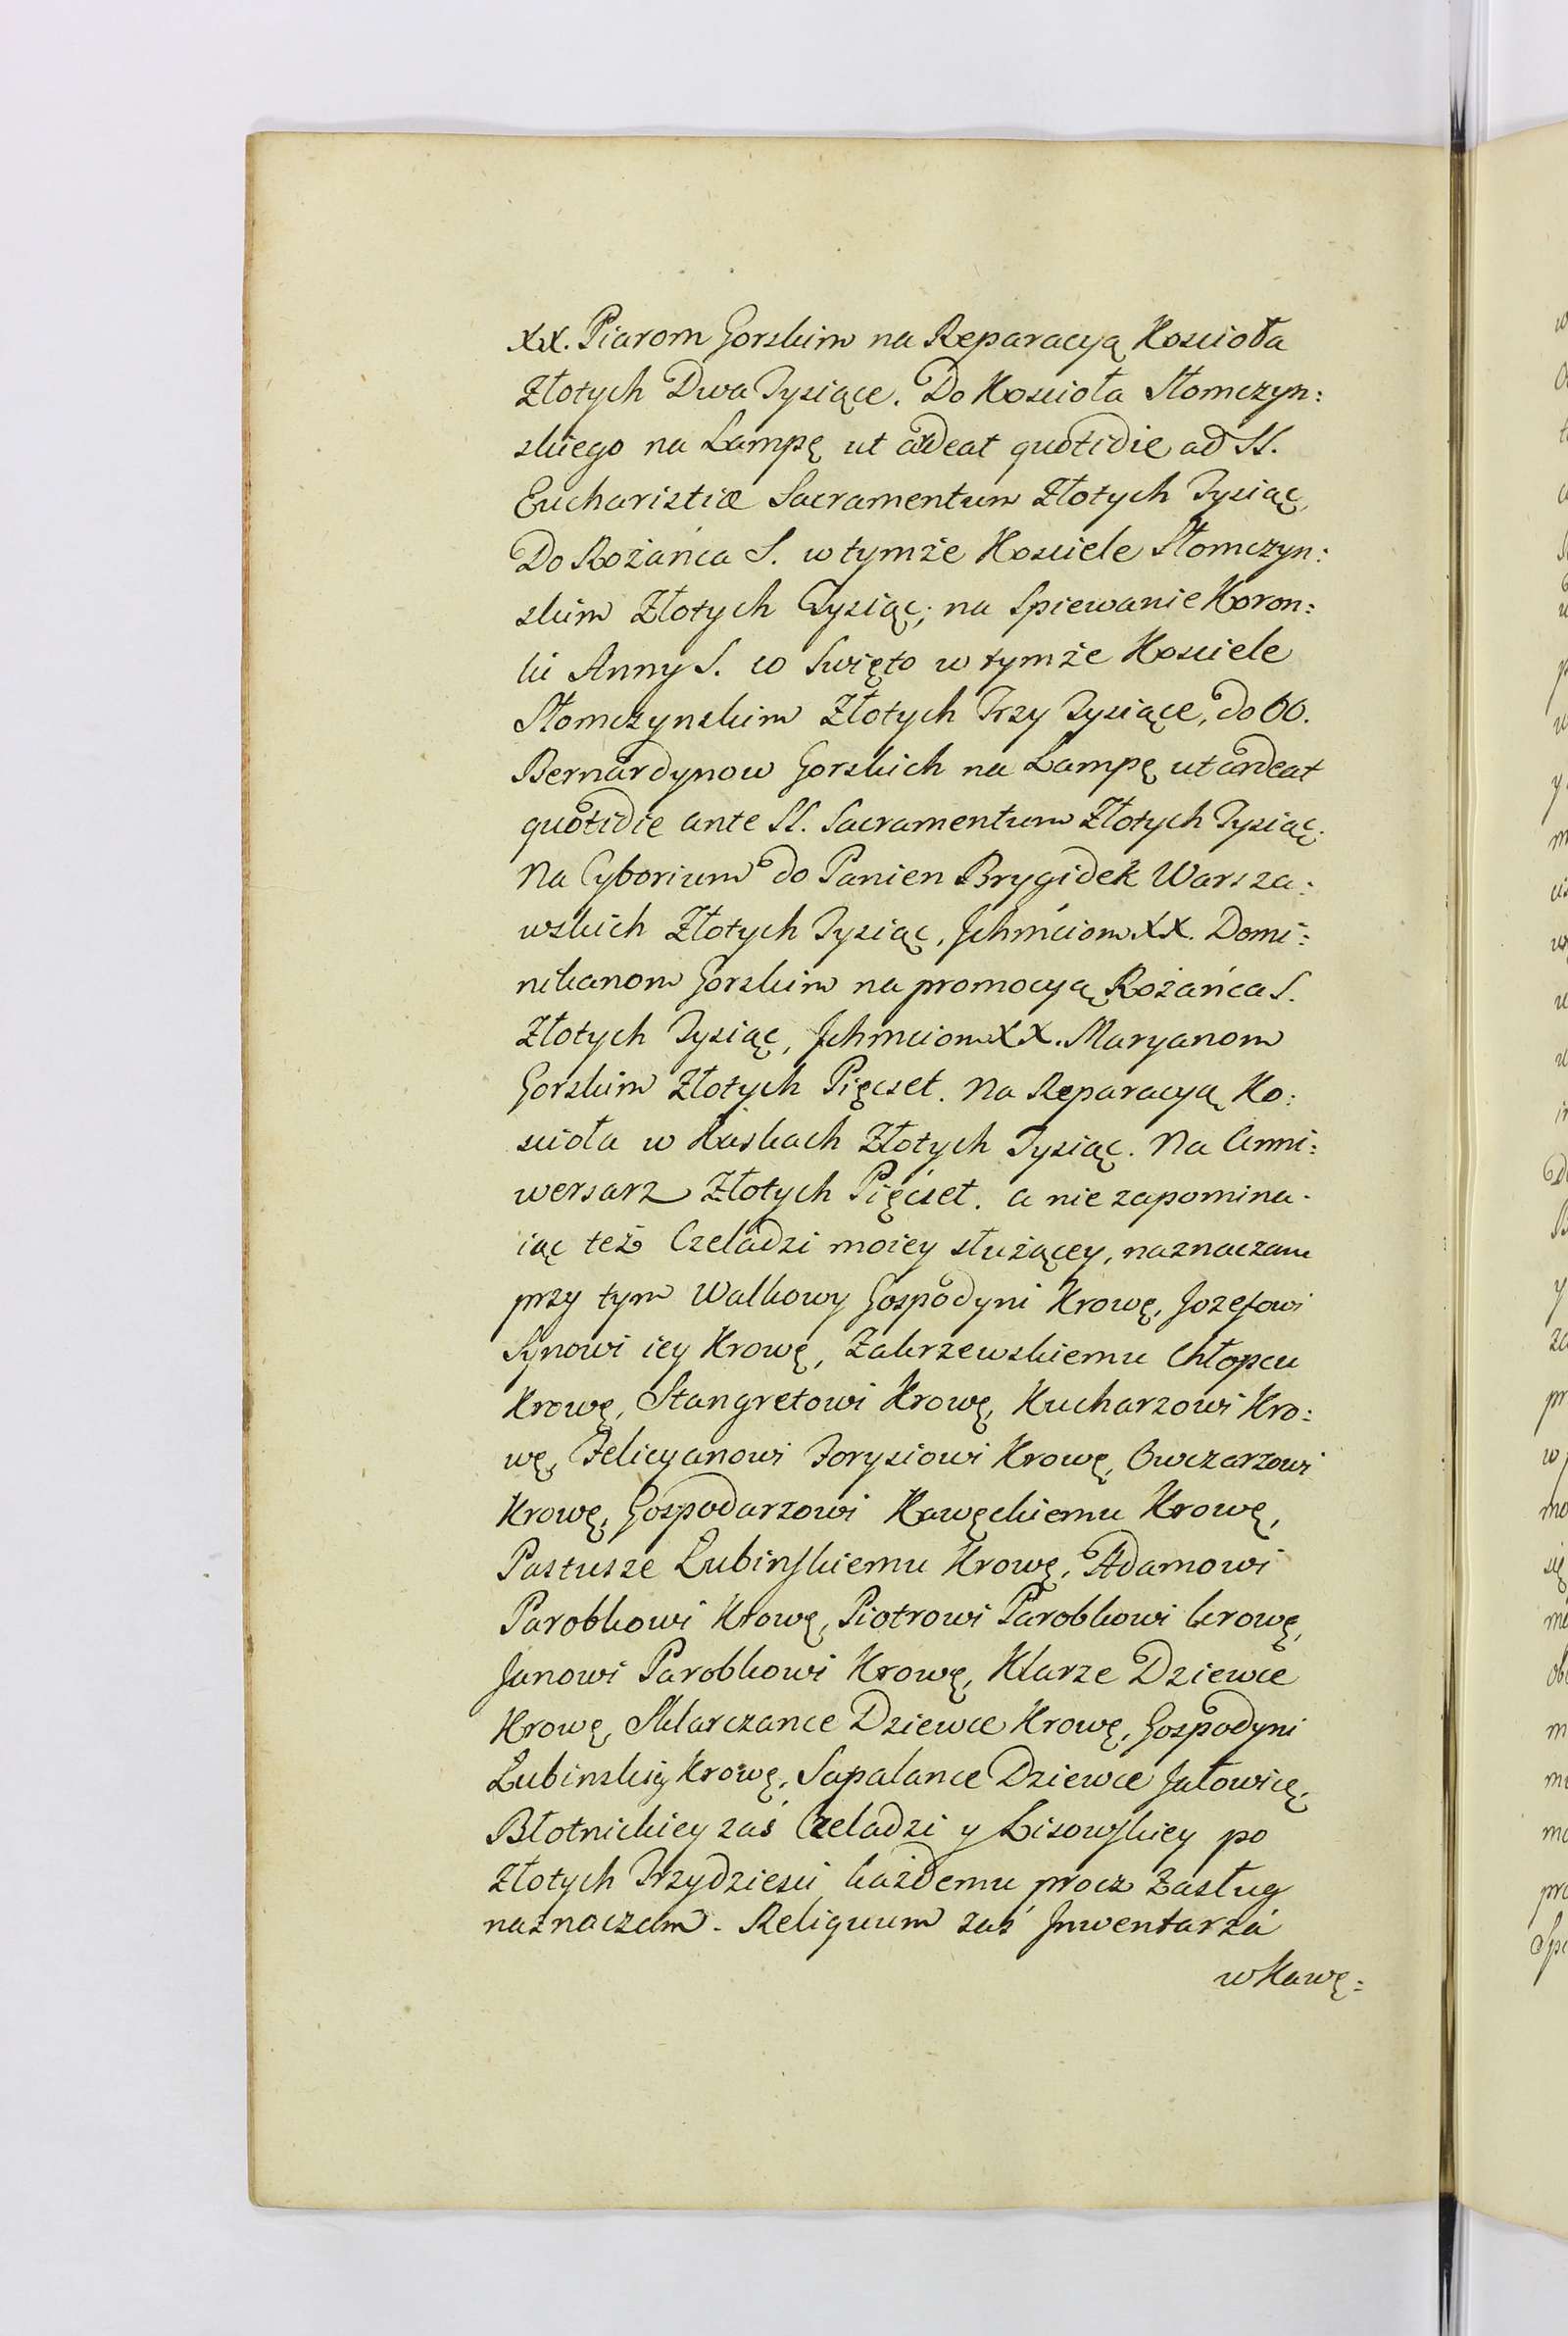 XX. Piarom Gorskim na Reparacyą Koscioła
Złotych Dwa Tysiące. Do Koscioła Słomczyn:
skiego na Lampę ut ardeat quotidie ad SS.
Eucharistiæ Sacramentum Złotych Tysiąc,
Do Rożańca S. w tymże Kosciele Słomczyn:
skim Złotych Tysiąc; na Spiewanie Koron:
ki Anny S. co Swięto w tymże Kosciele
Słomczynskim Złotych Trzy Tysiące, do OO.
Bernardynow Gorskich na Lampę ut ardeat
quotidie ante SS. Sacramentum Złotych Tysiąc.
Na Cyborium do Panien Brygidek Warsza:
wskich Złotych Tysiąc, Jchmćiom XX. Domi:
nikanom Gorskim na promocyą Rożańca S.
Złotych Tysiąc, Jchmciom XX. Maryanom
Gorskim Złotych Pięcset. Na Reparacyą Ko:
scioła w Kaskach Złotych Tysiąc. Na Anni:
wersarz Złotych Pięćset. a nie zapomina-
iąc też Czeladzi moiey służącey, naznaczam
przy tym Walkowy Gospodyni Krowę, Jozefowi
Synowi iey Krowę, Zakrzewskiemu Chłopcu
Krowę, Stangretowi Krowę, Kucharzowi Kro:
wę, Felicyanowi Forysiowi Krowę, Owczarzowi
Krowę, Gospodarzowi Kawęckiemu Krowę,
Pastusze Łubinskiemu Krowę, Adamowi
Parobkowi Krowę, Piotrowi Parobkowi krowę,
Janowi Parobkowi Krowę, Klarze Dziewce
Krowę, Sklarczance Dziewce Krowę, Gospodyni
Łubinskiy Krowę, Sapalance Dziewce Jałowicę,
Błotnickiey zaś Czeladzi y Lisowskiey po
Złotych Trzydziesci każdemu procz Zasług
naznaczam. Reliquum zaś Jnwentarzá
w Kawę: